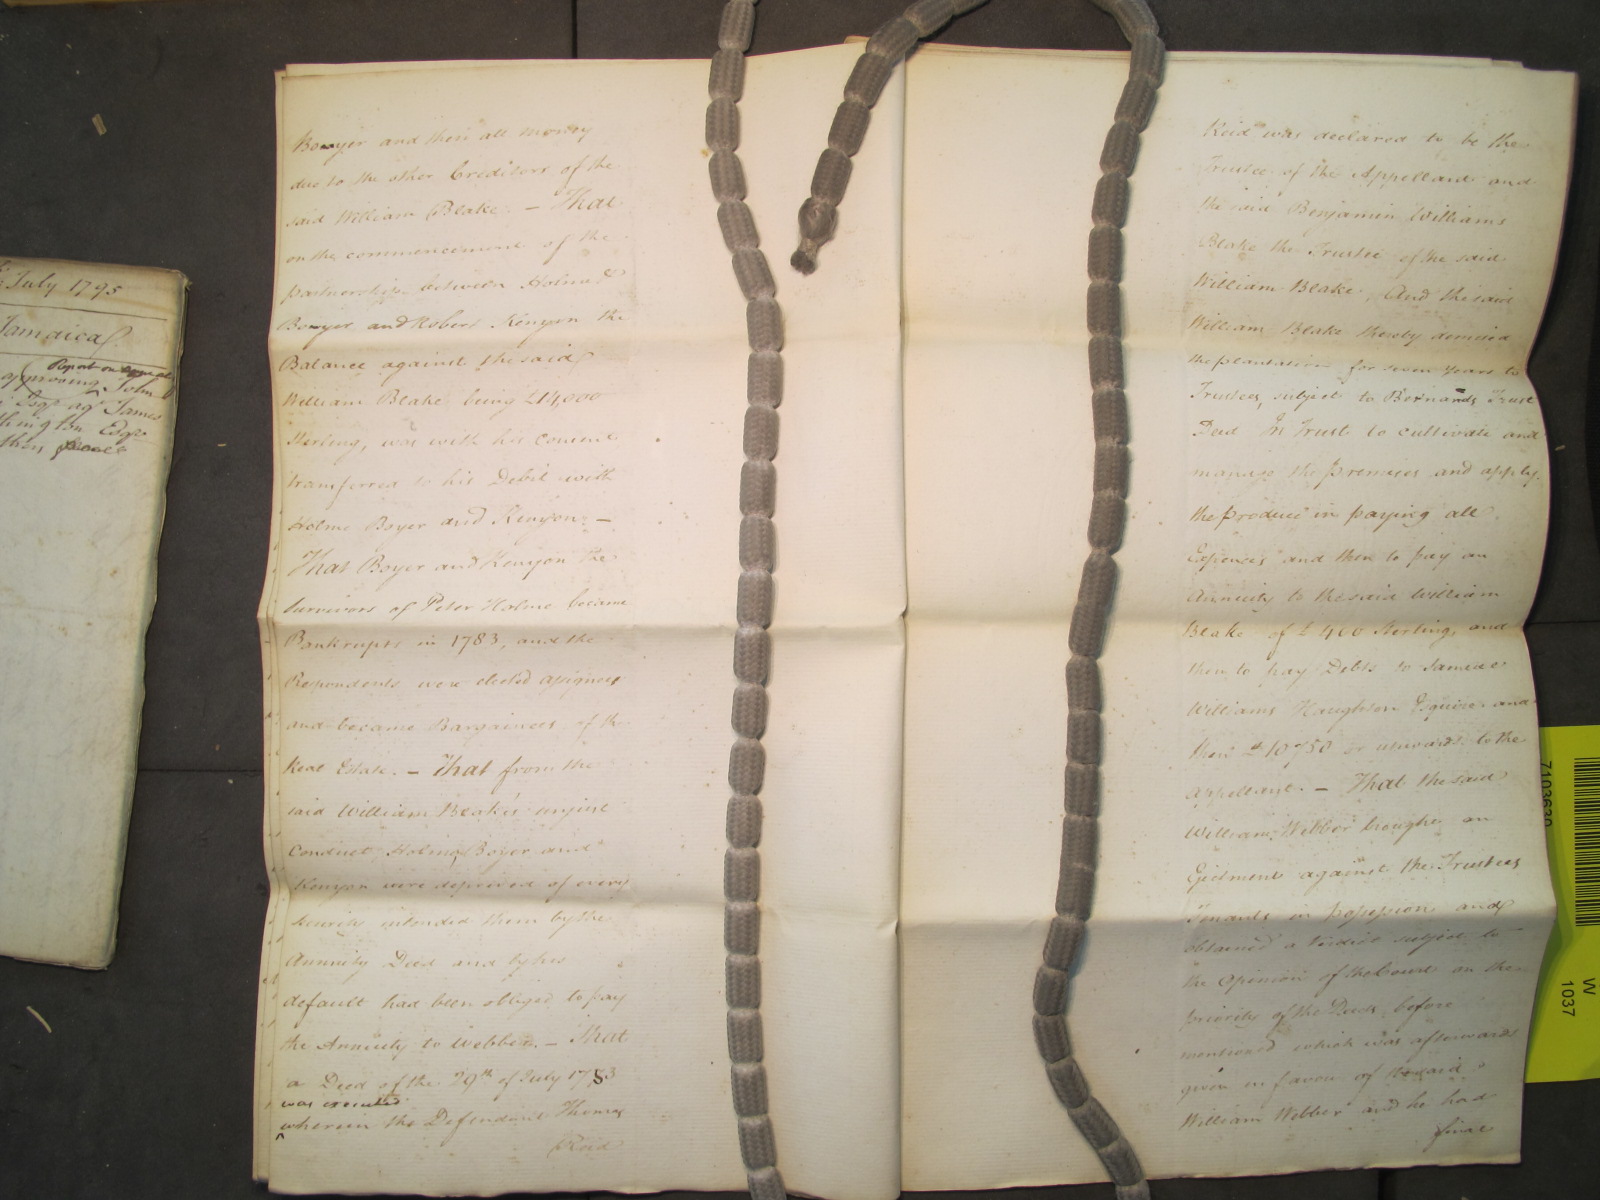 July 1795
Jamaica
Report on appeal
approving John
Esqr. agt. James
Esqr.
Boyer and then all money
due to the other Creditors of the
said William Blake. – That
on the commencement of the
partnership between Holme &
Boyer and Robert Kenyon the
Balance against the said
William Blake being £14,000
Sterling, was with his consent
transferred to his Debit with
Holme Boyer and Kenyon. –
That Boyer and Kenyon the
Survivors of Peter Holme became
Bankrupts in 1783, and the
Respondents were elected assignees
and became Bargainees of the
Real Estate. – That from the
said William Blake's unjust
Conduct, Holme, Boyer and
Kenyon were deprived of every
security intended them by the
Annuity Deed and by his
default had been obliged to pay
the Annuity to Webber. – That
a Deed of the 29th of July 1783
was executed
wherein the Defendant Thomas
Reid
Reid was declared to be the
Trustee of the Appellant and
the said Benjamin Williams
Blake the Trustee of the said
William Blake. And the said
William Blake thereby demised
the plantation for seven Years to
Trustees, subject to Bernards Trust
Deed In Trust to cultivate and
manage the premises and apply
the produce in paying all
Expences and then to pay an
Annuity to the said William
Blake of £400 Sterling, and
then to pay Debts to
Williams Haughton Esquire and
then £10750 or upwards to the
appellant. – That the said
William Webber brought an
Ejectment against the Trustees
Tenants in possession and
obtained a Verdict subject to
the Opinion of the Court on the
priority of the Deeds before
mentioned which was afterwards
given in favor of the said
William Webber and he had
final
7103630
W
1037